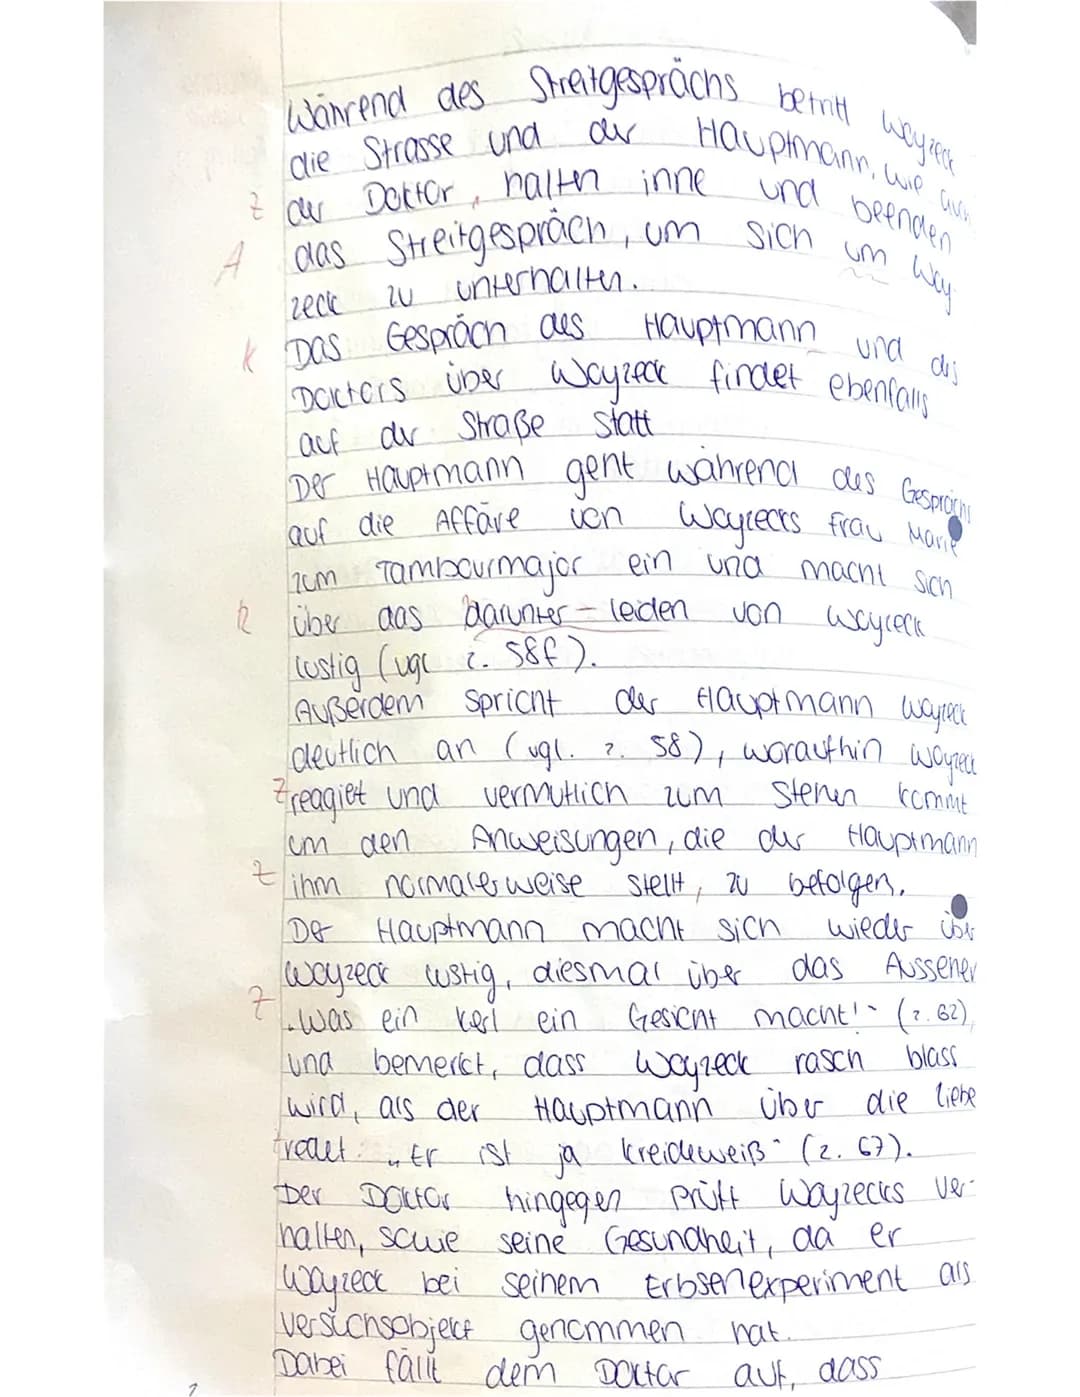 Während des Streitgesprächs betritt Woyzeck
die Strasse und der Hauptmann, wie auch
Z der Doktor, halten inne und beenden
A das Streitgespräch, um sich um Woy-
zeck zu unterhalten.
K Das Gespräch des Hauptmann und des
Doktors über Woyzeck findet ebenfalls
auf der Straße statt
Der Hauptmann geht während des Gesprächs
auf die Affäre von Woyzecks Frau Marie
zum Tambourmajor ein und macht sich
R über das darunter-leiden von Woyzeck
lustig (vgl z. 58f).
Außerdem spricht der Hauptmann Woyzeck
deutlich an (vgl. z. 58), woraufhin Woyzeck
Z reagiet und vermutlich zum stehen kommt
um den Anweisungen, die der Hauptmann
Z ihm normalerweise stellt, zu befolgen.
Der Hauptmann macht sich wieder über
Woyzeck lustig, diesmal über das Aussehen
Z „Was ein kerl ein Gesicht macht!" (z. 62),
und bemerkt, dass Woyzeck rasch blass
wird, als der Hauptmann über die liebe
redet. „Er ist ja kreideweiß" (z. 67).
Der Doktor hingegen prüft Woyzecks ver-
halten, sowie seine Gesundheit, da er
Woyzeck bei seinem Erbsenexperiment als
versuchsobjekt genommen hat.
Dabei fällt dem Doktor auf, dass